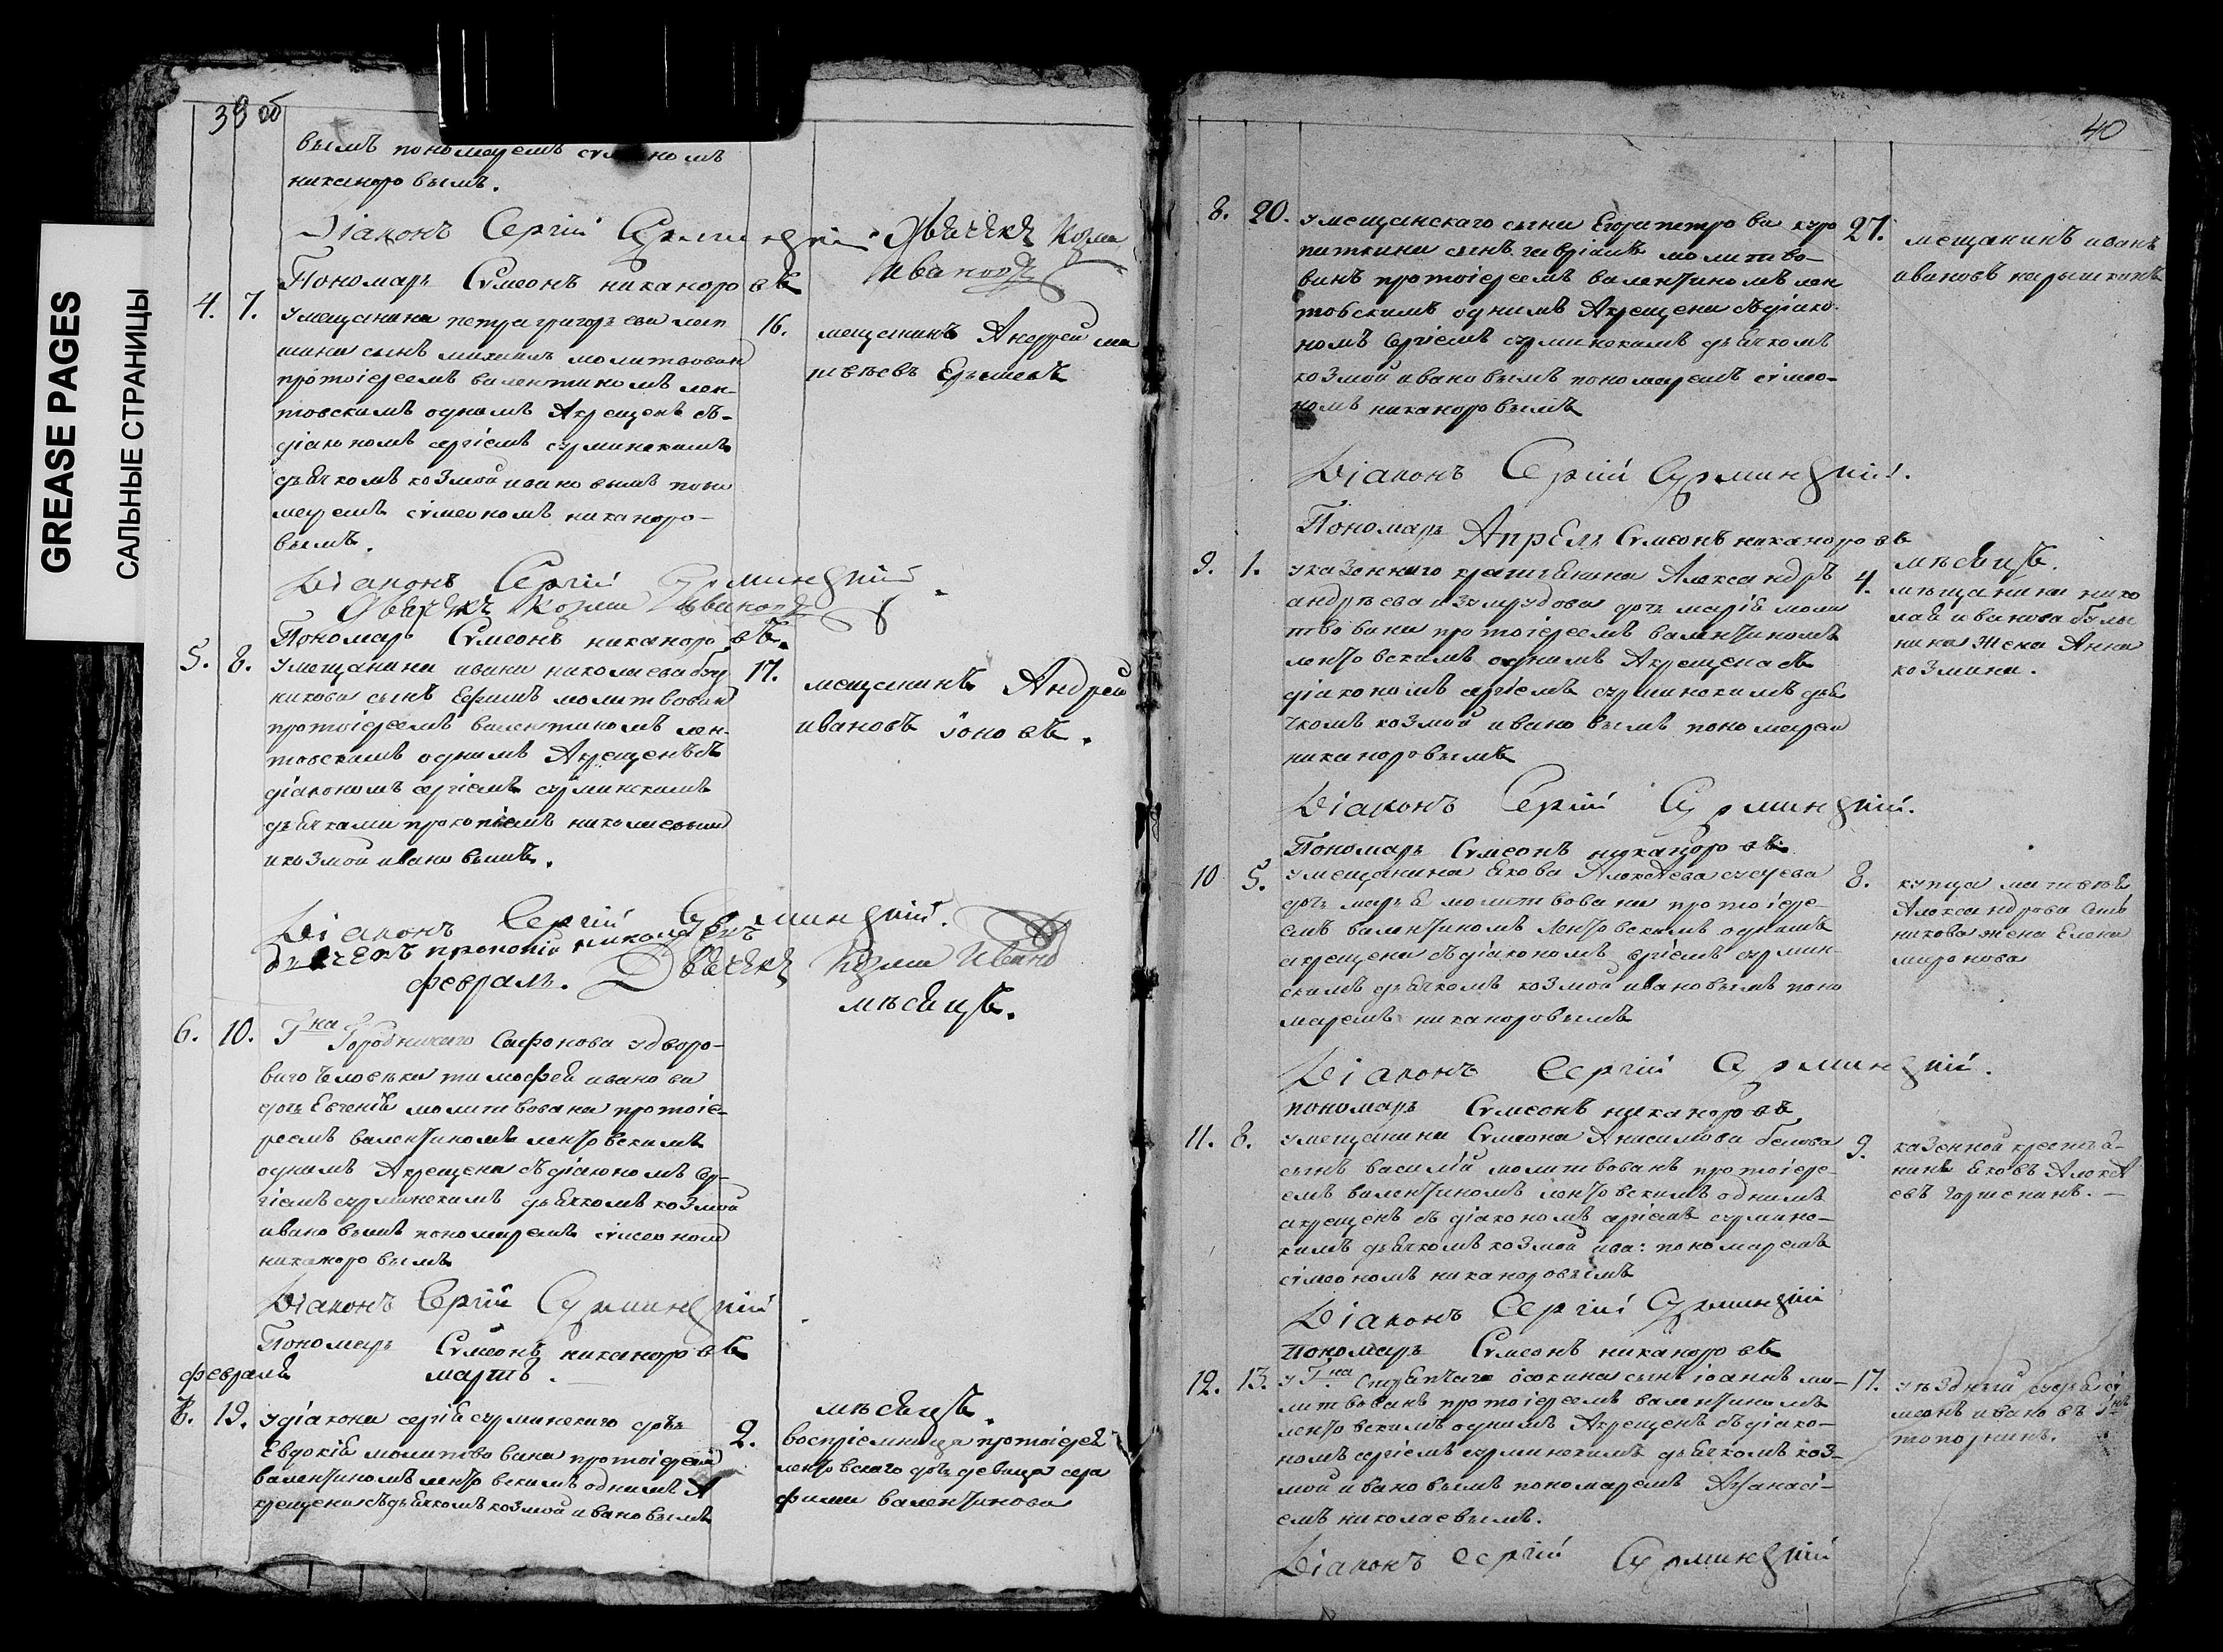 GREASE PAGES
САЛЬНЫЕ СТРАНИЦЫ
39 об
вымъ пономаремъ
никаноровымъ.
Діаконъ Сергій Сурминскій
Дьячекъ Козма
Ивановъ
Пономарь Сѵмеонъ никаноровъ
4. 7. у мещанина петра григорьева
сынъ михаилъ молитвован
протоіереемъ валентиномъ лен-
товскимъ однимъ А крещенъ съ-
діакономъ сергіемъ сурминскимъ
дьячкомъ козмой ивановымъ поно
маремъ сѵмеономъ никаноро-
вымъ.
16. мещанинъ Андрей ма
твѣевъ
Діаконъ Сергій Сурминскій
Дьячекъ Козма Ивановъ
Пономарь Сѵмеонъ никаноровъ.
5. 8. у мещанина ивана николаева
сынъ Ефимъ молитвован
протоіереемъ валентиномъ лен-
товскимъ однимъ А крещенъ съ
діакономъ сергіемъ сурминскимъ
дьячками прокопіемъ николаевым
и козмой ивановымъ.
17. мещанинъ Андрей
ивановъ іоновъ.
Діаконъ Сергій Сурминскій.
дьячекъ прокопій николаевъ
Дьячекъ Козма Ивано
февраль. мѣсяцъ.
6. 10. Гна Городничаго Сафонова у дворо-
ваго человѣка тимофея иванова
дочь Евгенія молитвована протоіе-
реемъ валентиномъ лентовскимъ
однимъ А крещена съ діакономъ сер-
гіемъ сурминскимъ дьячкомъ козмой
ивановымъ пономаремъ сѵмеоном
никаноровымъ
Діаконъ Сергій Сурминскій
Пономарь Сѵмеонъ никаноровъ
февраля мартъ. мѣсяцъ.
19. у діакона сергія сурминскаго дочь
Евдокія молитвована протоіереем
валентиномъ лентовскимъ однимъ А
крещена съ дьячкомъ козмой ивановымъ
2. воспріемница протоіерея
лентовскаго дочь девица сера
фима валентинова
40
8. 20. у мещанскаго сына Егора петрова
сынъ гавріилъ молитво-
ванъ протоіереемъ валентиномъ лен
товскимъ однимъ А крещена съ діако-
номъ сергіемъ сурминскимъ дьячкомъ
козмой ивановымъ пономаремъ сімео-
номъ никаноровымъ
27. мещанинъ иванъ
ивановъ нарышкинъ
Діаконъ Сергій Сурминскій.
Пономарь Сѵмеонъ никаноровъ
Апрель мѣсяцъ.
9. 1. у казеннаго крестьянина Александръ
андрѣева изумрудова дочь марія моли
твована протоіереемъ валентиномъ
лентовскимъ однимъ А крещена съ
діакономъ сергіемъ сурминскимъ дья
чкомъ козмой ивановымъ пономарем
никаноровымъ
4. мѣщанина нико
лая иванова
жена Анна
козмина.
Діаконъ Сергій Сурминскій.
Пономарь Сѵмеонъ никаноровъ.
10 5. у мещанина Якова Алексеева
дочь марья молитвована протоіере-
емъ валентиномъ лентовскимъ однимъ
а крещена съ діакономъ сергіемъ сурмин-
скимъ дьячкомъ козмой ивановымъ поно
маремъ никаноровымъ
8. купца матвея
Александрова
жена Елена
миронова
Діаконъ Сергій Сурминскій.
пономарь Сѵмеонъ никаноровъ
11. 8. у мещанина Сѵмеона Анисимова белова
сынъ василій молитвованъ протоіере-
емъ валентиномъ лентовскимъ однимъ
а крещенъ съ діакономъ сергіемъ сурмино-
кимъ дьячкомъ козмой ива: пономаремъ
сімеономъ никаноровымъ
9. казенной крестья-
нинъ Яковъ Алексе
евъ горшенинъ.
Діаконъ Сергій Сурминскій
Пономарь Сѵмеонъ никаноровъ
12. 13. у Гна осокина сынъ іоаннъ мо-
литвованъ протоіереемъ валентиномъ
лентовскимъ однимъ А крещенъ съ діако-
номъ сергіемъ сурминскимъ дьячкомъ коз-
мой ивановымъ пономаремъ Аѳанасі-
емъ николаевымъ.
17. уѣздный судья сі
меонъ ивановъ Гнъ
топорнинъ.
Діаконъ Сергій Сурминскій